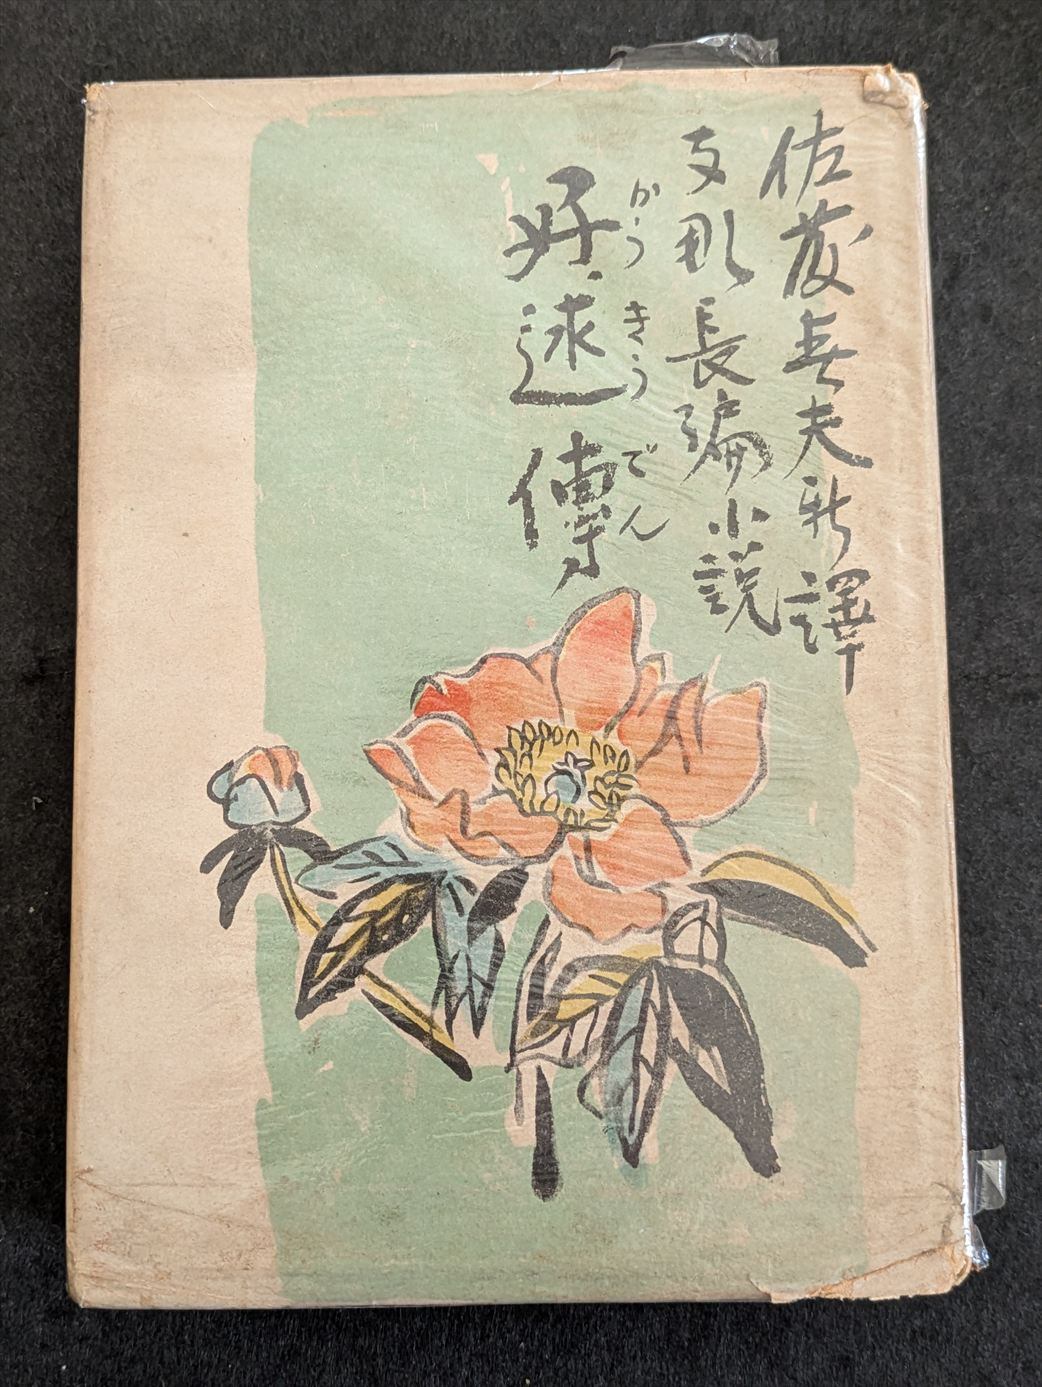 佐藤春夫新譯
支那長編小説
好逑傳
かうきうでん